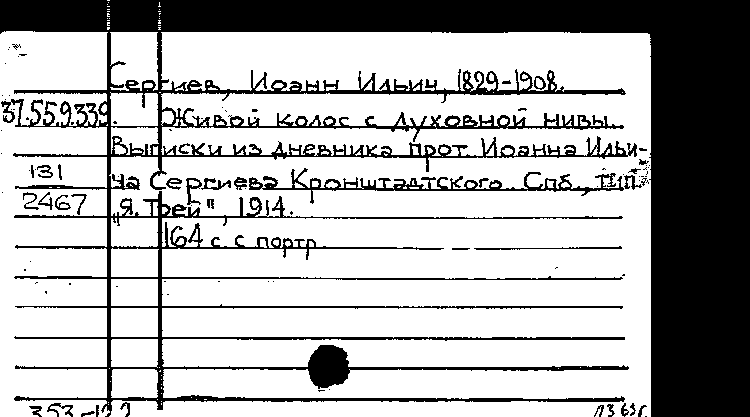 Сергиев, Иоанн Ильич, 1829-1908.
37.55.9.339. Живой колос с духовной нивы.
Выписки из дневника прот. Иоанна Ильи-
131 ча Сергиева Кронштадтского. Спб., тип.
2467 "Я. Трей", 1914.
164 с. с портр.